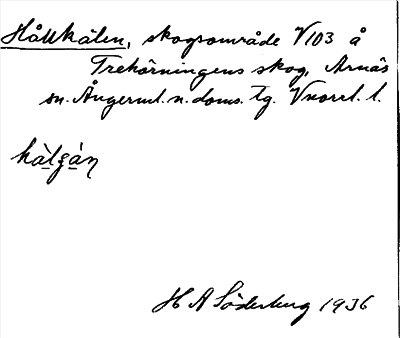 Hållkälen, skogsområde V103 å
Trekörningens skog, Arnäs
sn. Ångerml. n. doms. tg. Vnorrl. l.
H A Söderberg 1936